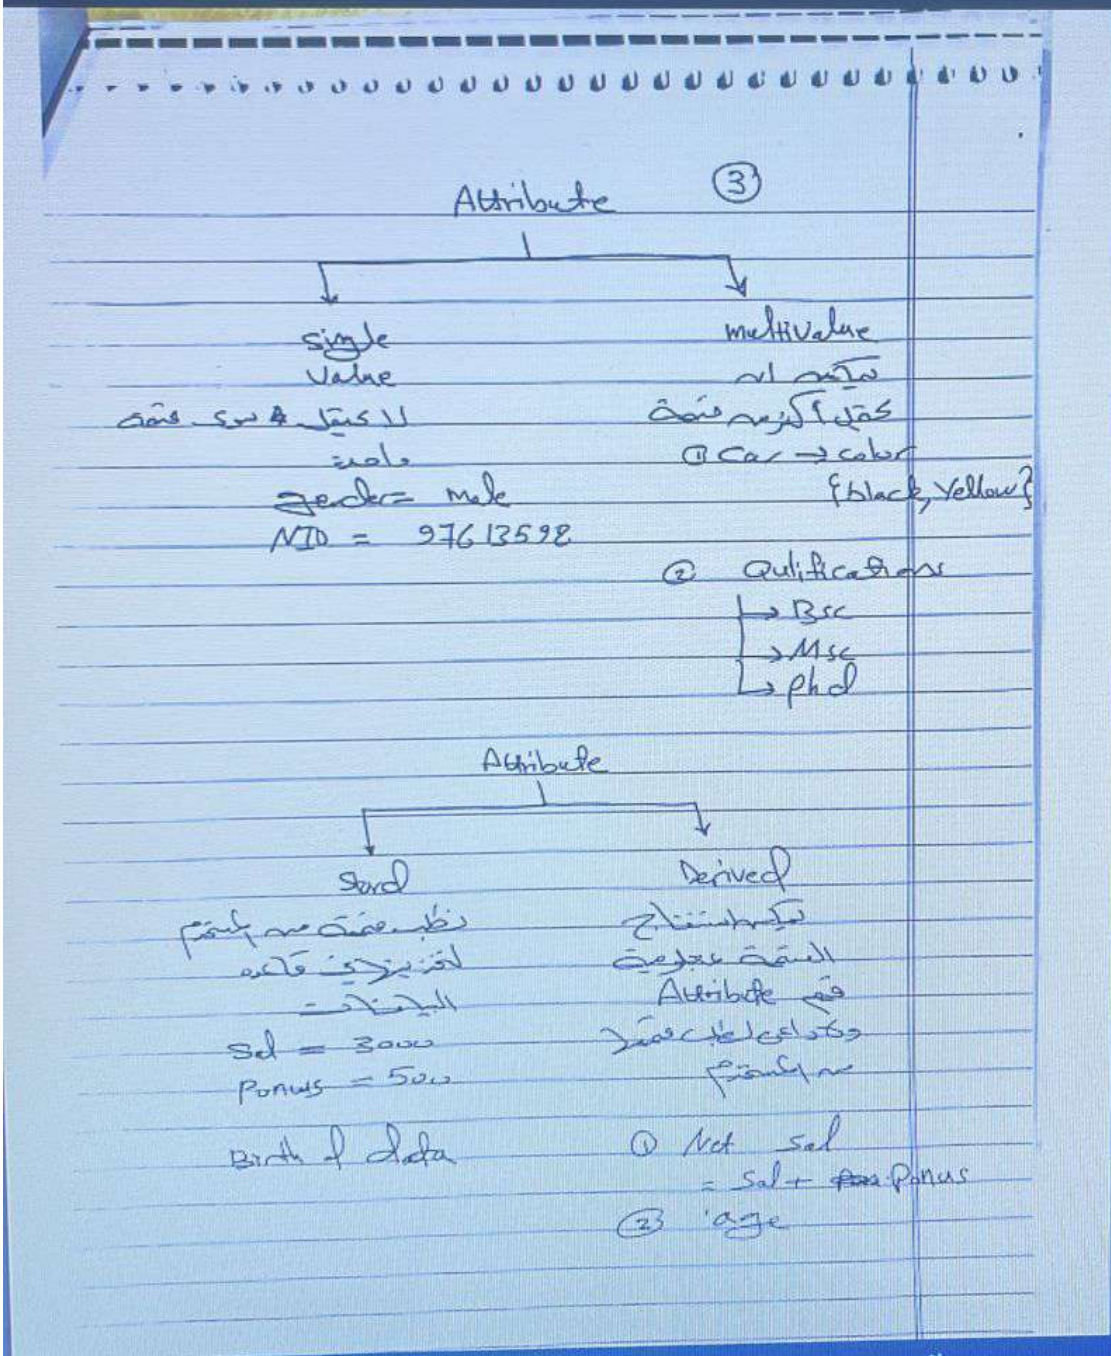 Attribute ③
single
Value
لا يقبل سوى قيمة
واحدة
gender = Male
NID = 97613592
multivalue
يمكن ان
يقبل أكثر من قيمة
① Car → color
{black, Yellow}
② Qulifications
→ Bsc
→ Msc
→ phd
Attribute
Stord
نطلب قيمة من المستخدم
قاعده
البيانات
Sal = 3000
Ponus = 500
Birth of data
Derived
يمكن استنتاج
القيمة
قيم Attribute
من المستخدم
① Net sal
= Sal + Ponus
② age